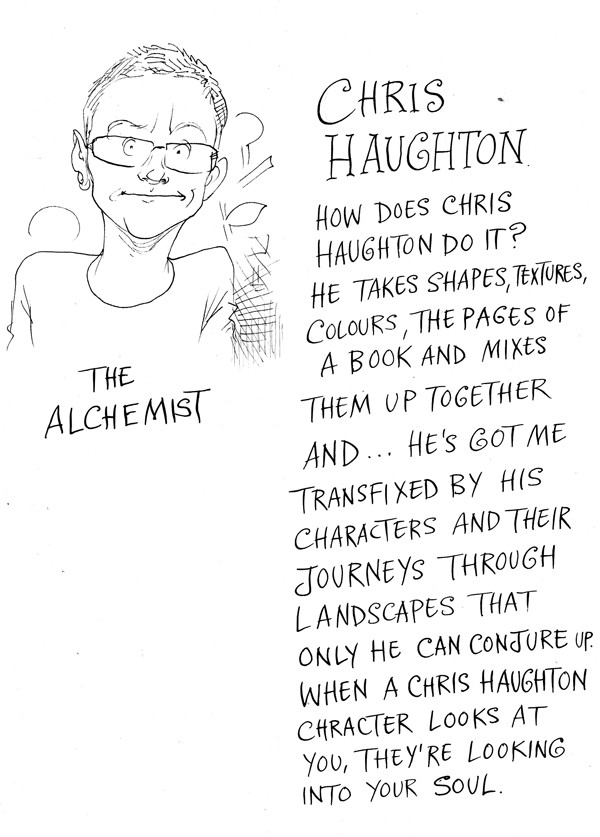 CHRIS
HAUGHTON
HOW DOES CHRIS
HAUGHTON DO IT?
HE TAKES SHAPES, TEXTURES,
COLOURS, THE PAGES OF
A BOOK AND MIXES
THEM UP TOGETHER
AND... HE'S GOT ME
TRANSFIXED BY HIS
CHARACTERS AND THEIR
JOURNEYS THROUGH
LANDSCAPES THAT
ONLY HE CAN CONJURE UP.
WHEN A CHRIS HAUGHTON
CHRACTER LOOKS AT
YOU, THEY'RE LOOKING
INTO YOUR SOUL.
THE
ALCHEMIST